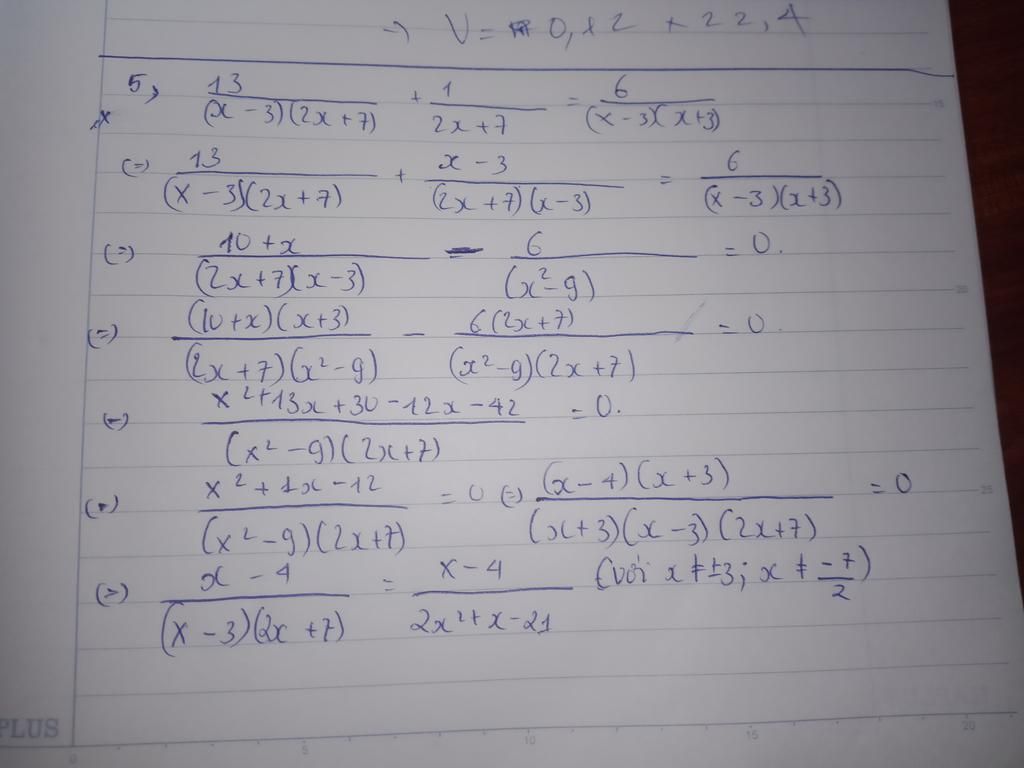 → V = 0,12 + 22,4
5, 13/((x-3)(2x+7)) + 1/(2x+7) = 6/((x-3)(x+3))
(=) 13/((x-3)(2x+7)) + (x-3)/((2x+7)(x-3)) = 6/((x-3)(x+3))
(=) (10+x)/((2x+7)(x-3)) - 6/(x²-9) = 0.
(=) ((10+x)(x+3))/((2x+7)(x²-9)) - (6(2x+7))/((x²-9)(2x+7)) = 0.
(=) (x²+13x+30-12x-42)/((x²-9)(2x+7)) = 0.
(=) (x²+1x-12)/((x²-9)(2x+7)) = 0 (=) ((x-4)(x+3))/((x+3)(x-3)(2x+7)) = 0
(=) (x-4)/((x-3)(2x+7)) = (x-4)/(2x²+x-21) (với x ≠ ±3; x ≠ -7/2)
PLUS
0 5 10 15 20
15
20
25